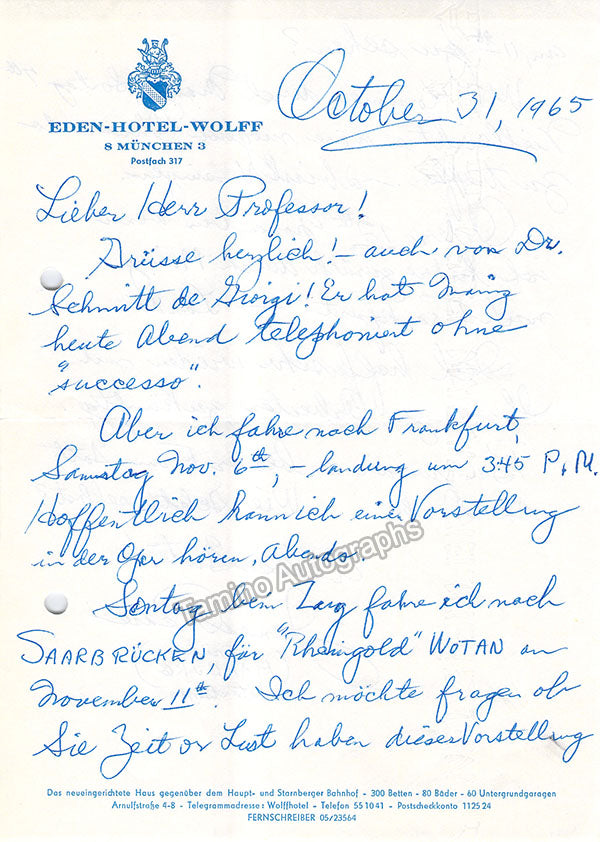 EDEN-HOTEL-WOLFF
8 MÜNCHEN 3
Postfach 317
October 31, 1965
Lieber Herr Professor!
Grüsse herzlich! – auch von Dr.
Schmitt de Giorgi! Er hat Mainz
heute Abend telephoniert ohne
"successo".
Aber ich fahre nach Frankfurt,
Samstag Nov. 6th, – landung um 3:45 P.M.
Hoffentlich kann ich einer Vorstellung
in der Oper hören, Abends.
Tamino Autographs
Sontag beim Zug fahre ich nach
SAARBRÜCKEN, für "Rheingold" WOTAN an
November 11th. Ich möchte fragen ob
Sie Zeit or Lust haben dieses Vorstellung
Das neueingerichtete Haus gegenüber dem Haupt- und Starnberger Bahnhof - 300 Betten - 80 Bäder - 60 Untergrundgaragen
Arnulfstraße 4-8 - Telegrammadresse: Wolffhotel - Telefon 55 10 41 - Postscheckkonto 1125 24
FERNSCHREIBER 05/23564